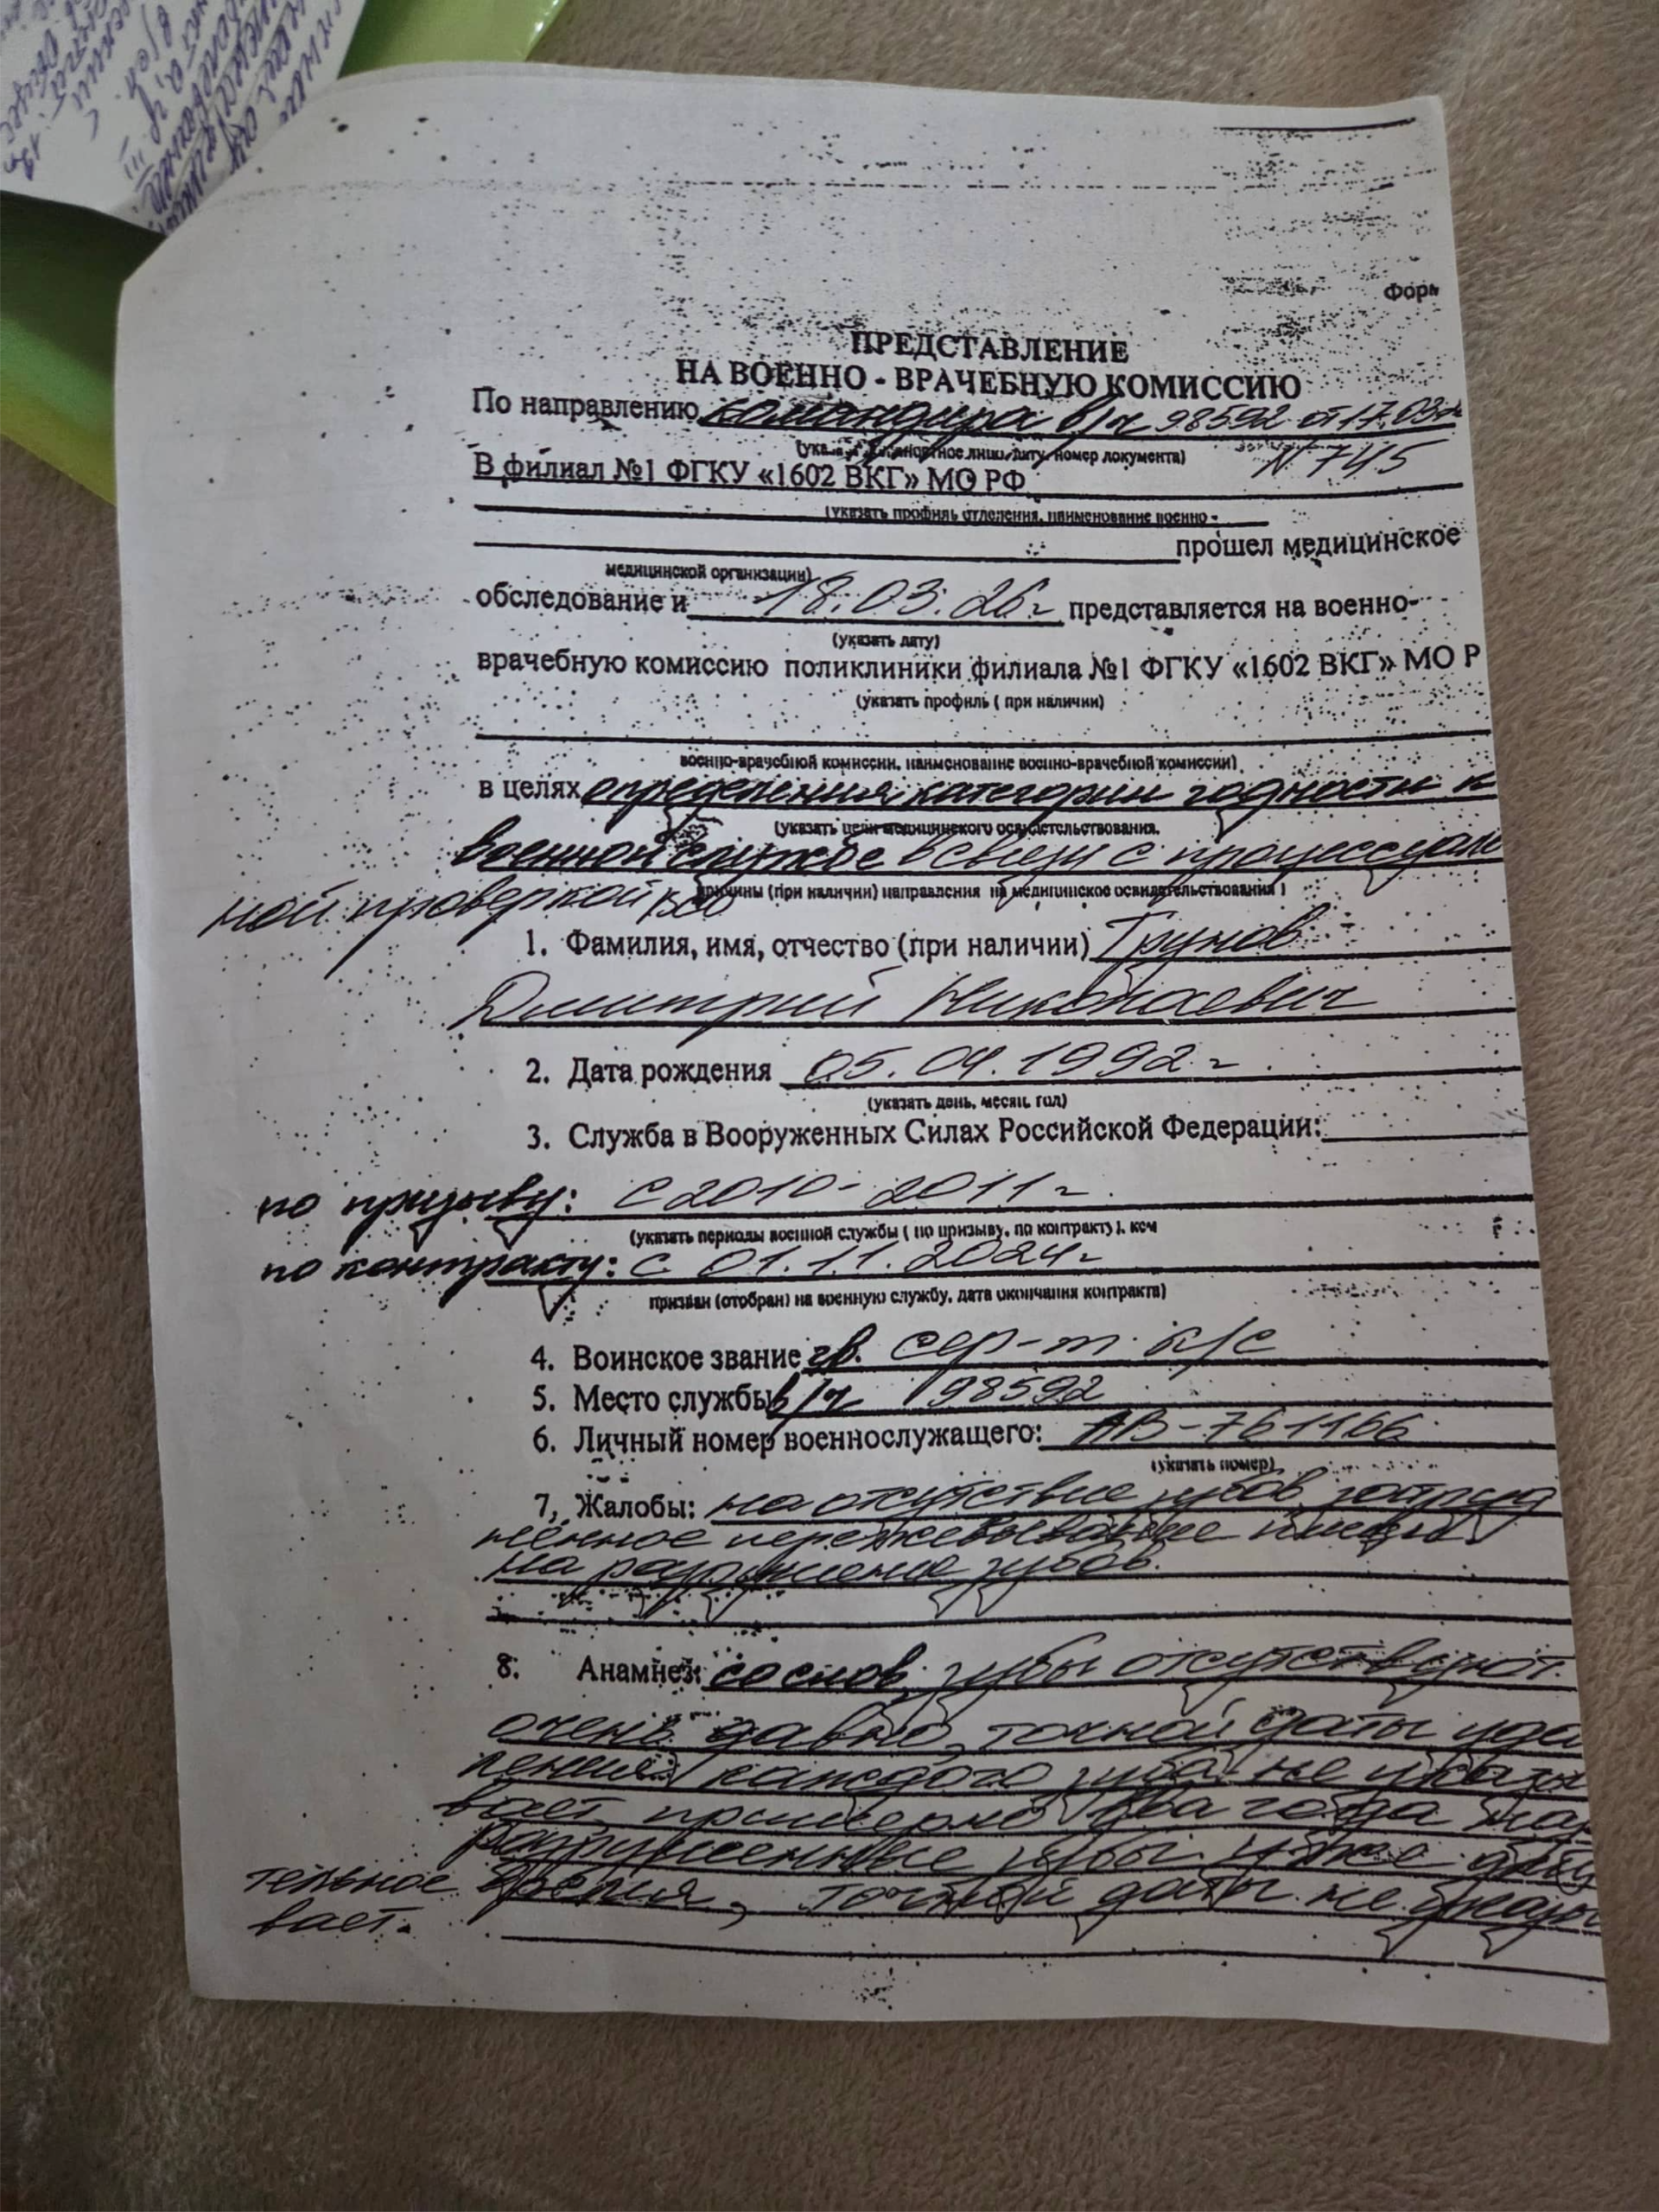 Форм
ПРЕДСТАВЛЕНИЕ
НА ВОЕННО - ВРАЧЕБНУЮ КОМИССИЮ
По направлению командира в/ч 98592 от 17.03.
(указать должностное лицо, дату, номер документа) N 745
В филиал №1 ФГКУ «1602 ВКГ» МО РФ
(указать профиль отделения, наименование военно -
прошел медицинское
медицинской организации)
обследование и 18.03.26г представляется на военно-
(указать дату)
врачебную комиссию поликлиники филиала №1 ФГКУ «1602 ВКГ» МО Р
(указать профиль ( при наличии)
военно-врачебной комиссии, наименование военно-врачебной комиссии)
в целях определения категории годности к
(указать цели медицинского освидетельствования,
военной службе в связи с процессуаль
причины (при наличии) направления на медицинское освидетельствования )
ной проверкой
1. Фамилия, имя, отчество (при наличии) Трунов
Дмитрий Николаевич
2. Дата рождения 05.04.1992г
(указать день, месяц, год)
3. Служба в Вооруженных Силах Российской Федерации:
по призыву: с 2010- 2011г.
(указать периоды военной службы ( по призыву, по контракту), кем
по контракту: с 01.11.2024г
призван (отобран) на военную службу, дата окончания контракта)
4. Воинское звание гв. сер-т к/с
5. Место службы в/ч 98592
6. Личный номер военнослужащего: АВ-761166
(указать номер)
7, Жалобы: на отсутствие зубов, затруд
ненное пережевывание пищи,
на разрушение зубов.
8. Анамнез: со слов, зубы отсутствуют
очень давно, точной даты уда
ления каждого зуба не указы
вает, примерно два года наз
разрушенные зубы уже дли
тельное время, точной даты не указы
вает.